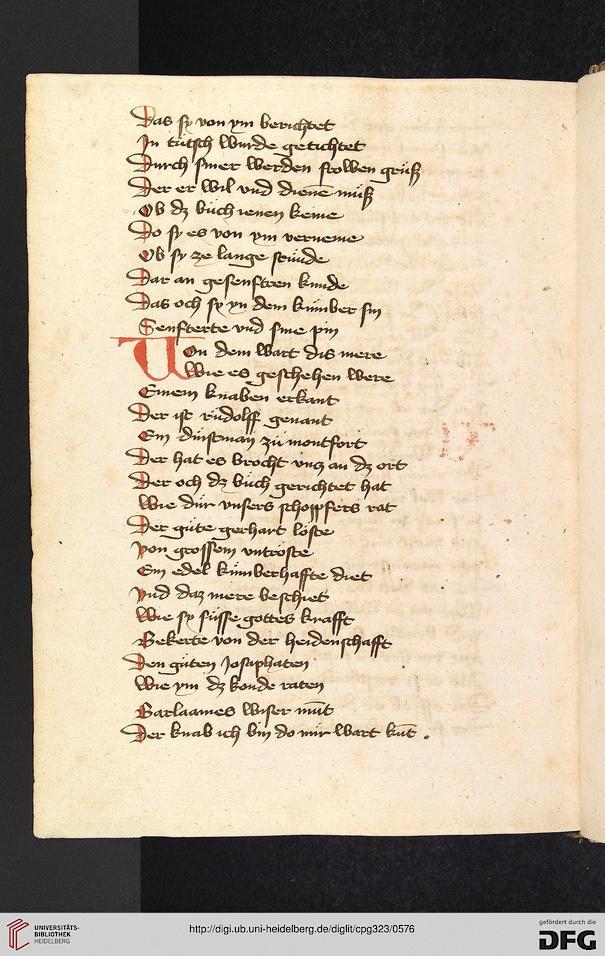 Das sy von ym berichtet
In tútsch wurde getichtet
Durch siner werden frowen grúß
Der er wil vnd dienē múß
Ob dz búch ienen keme
Do sy es von ym verneme
Ob sy ze lange stúnde
Dar an gesenftren kunde
Das och sy yn dem kumber sin
Senfterte vnd sine pin
Von dem wart dis mere
Wie es geschehen were
Einem knaben erkant
Der ist rúdolff genant
Ein dinstman zú montfort
Der hat es brocht vncz an dz ort
Der och dz búch gerichtet hat
Wie dúr vnsers schoppfers rat
Der gúte gerhart löste
von grossem vntröste
Ein edel kumberhaffte diet
vnd daz mere beschiet
Wie sy süsse gottes krafft
Bekerte von der heidenschafft
Den gúten Josaphaten
Wie ym dz konde raten
Barlaames wiser mūt
Der knab ich bin do mir wart kūt .
UNIVERSITÄTS-
BIBLIOTHEK
HEIDELBERG
http://digi.ub.uni-heidelberg.de/diglit/cpg323/0576
gefördert durch die
DFG